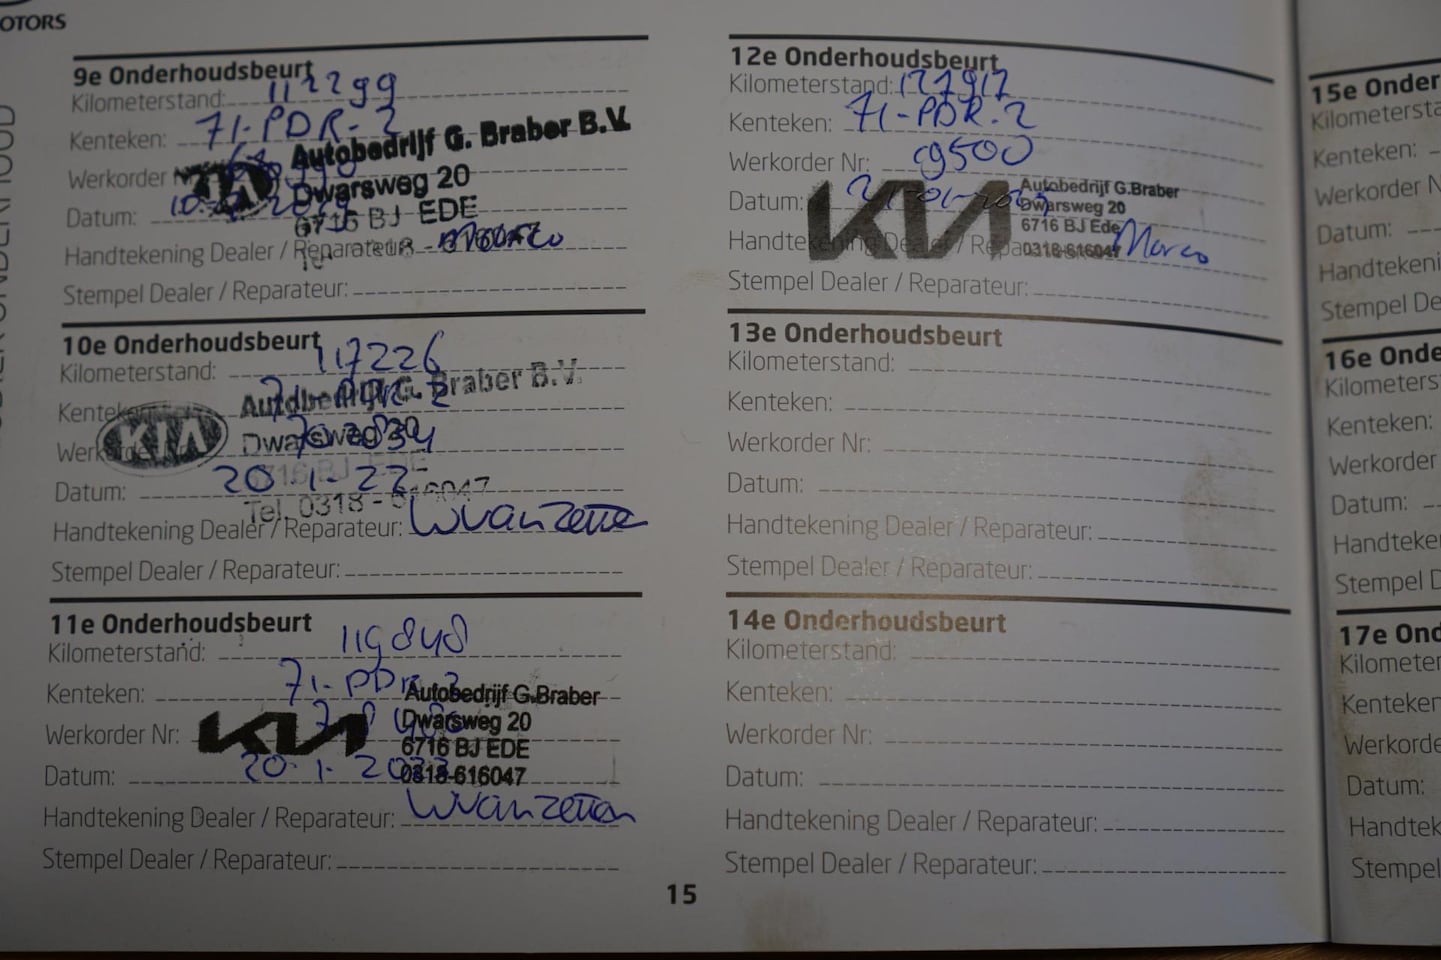 OTORS
9e Onderhoudsbeurt
Kilometerstand: 112299
Kenteken: 71-PDR-2
Autobedrijf G. Braber B.V.
Werkorder
KIA
Dwarsweg 20
Datum:
6716 BJ EDE
Handtekening Dealer / Reparateur:
Stempel Dealer / Reparateur:
10e Onderhoudsbeurt
Kilometerstand: 117226
Autobedrijf G. Braber B.V.
KIA
Dwarsweg 20
6716 BJ EDE
Datum: 20-1-22-
Tel. 0318 - 616047
Handtekening Dealer / Reparateur:
Stempel Dealer / Reparateur:
11e Onderhoudsbeurt
Kilometerstand: 119848
Kenteken: 71-PDR-2
Autobedrijf G.Braber
Werkorder Nr:
KIA
Dwarsweg 20
6716 BJ EDE
Datum: 20-1-2023
0318-616047
Handtekening Dealer / Reparateur:
Stempel Dealer / Reparateur:
12e Onderhoudsbeurt
Kilometerstand: 127917
Kenteken: 71-PDR-2
Werkorder Nr: cg500
Datum:
KIA
Autobedrijf G.Braber
Dwarsweg 20
6716 BJ Ede
0318-616047
Handtekening Dealer / Reparateur: Marco
Stempel Dealer / Reparateur:
13e Onderhoudsbeurt
Kilometerstand:
Kenteken:
Werkorder Nr:
Datum:
Handtekening Dealer / Reparateur:
Stempel Dealer / Reparateur:
14e Onderhoudsbeurt
Kilometerstand:
Kenteken:
Werkorder Nr:
Datum:
Handtekening Dealer / Reparateur:
Stempel Dealer / Reparateur:
15
15e Onder
Kilometersta
Kenteken:
Werkorder N
Datum:
Handtekeni
Stempel De
16e Onde
Kilometers
Kenteken:
Werkorder
Datum:
Handteke
Stempel D
17e Ond
Kilometer
Kenteken
Werkorde
Datum:
Handtek
Stempel